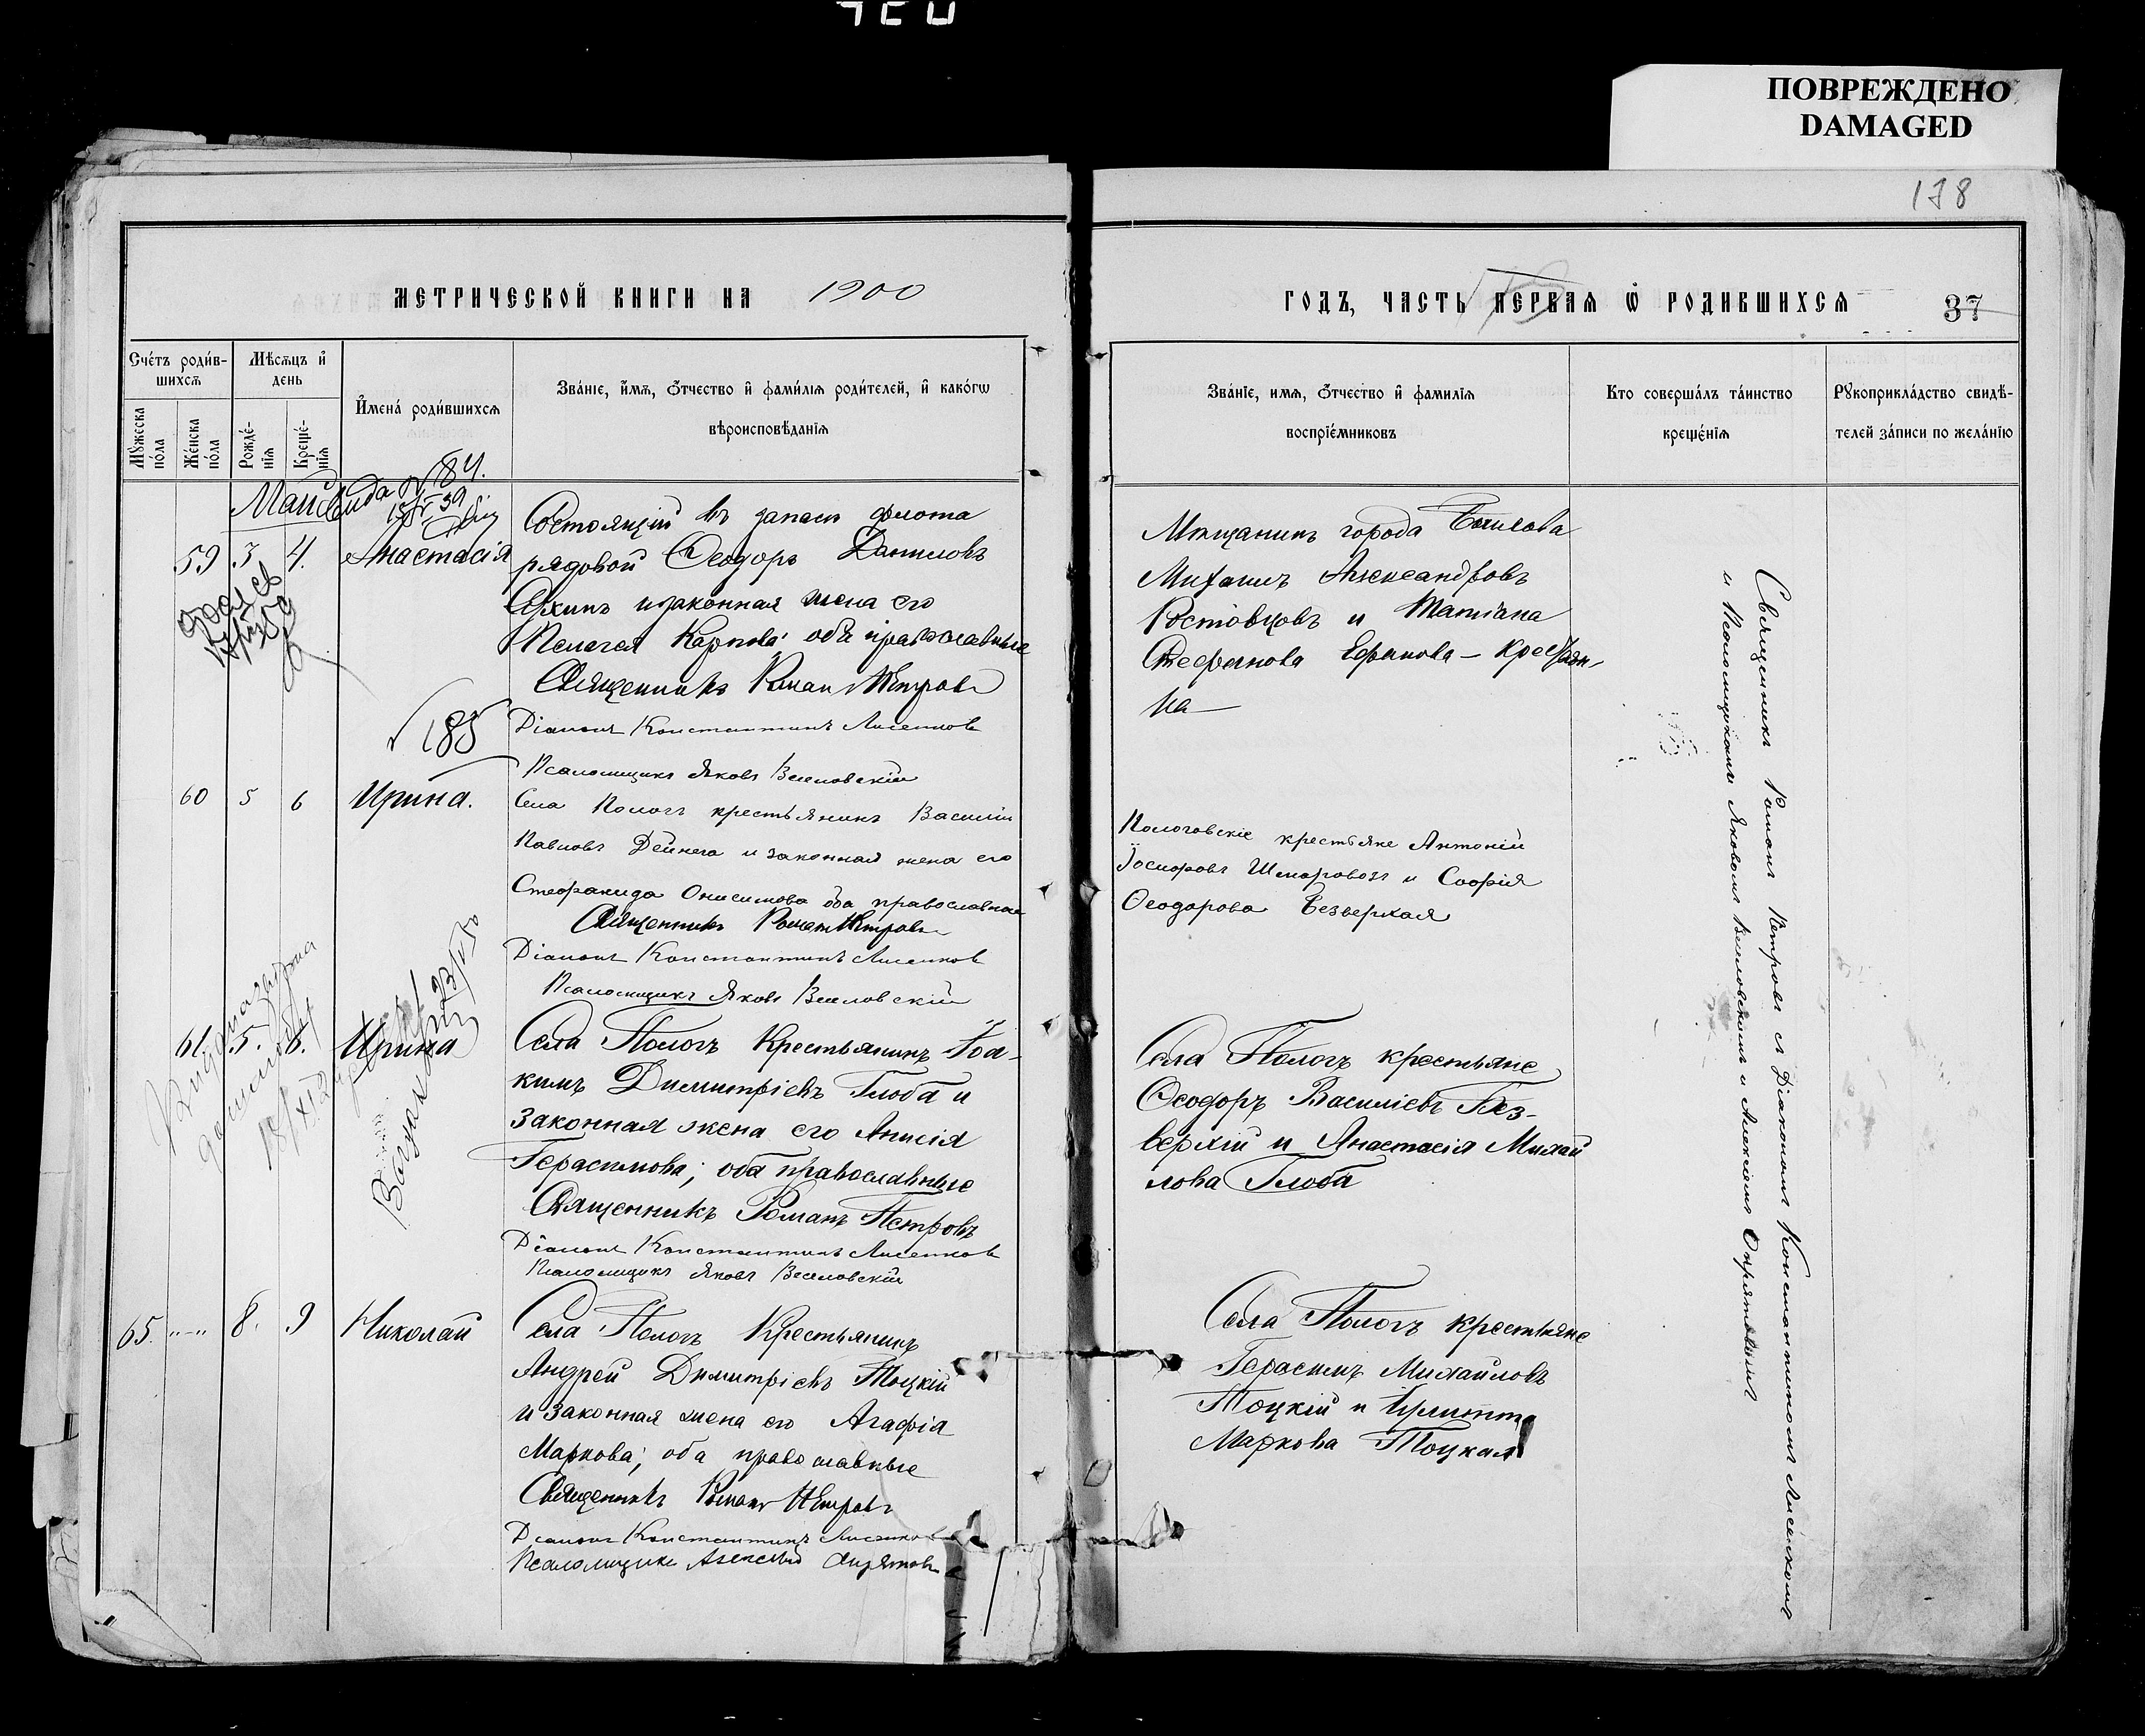 ПОВРЕЖДЕНО
DAMAGED
178
МЕТРИЧЕСКОЙ КНИГИ НА 1900
ГОДЪ, ЧАСТЬ ПЕРВАЯ Ѡ РОДИВШИХСЯ
37
Сче́тъ роди́в-
шихсѧ
Мꙋ́жеска по́ла
Же́нска по́ла
Мѣсѧцъ и҆ день
Рожде́-
нїѧ
Креще́-
нїѧ
И҆мена̀ роди́вшихсѧ
Зва́нїе, и҆́мѧ, ѻ҆́тчество и҆ фами́лїѧ роди́телей, и҆ како́гѡ
вѣроисповѣ́данїѧ
Зва́нїе, имѧ, ѻ҆́тчество и҆ фамилїѧ
воспрїе́мниковъ
Кто соверша́лъ та́инство
креще́нїѧ
Рꙋкоприкла́дство свидѣ́-
телей за́писи по жела́нїю
Май
184.
59 3 4. Анастасія
Состоящій въ запасѣ флота
рядовой Ѳеодоръ Даниловъ
и законная жена его
Пелагея Карпова; оба православные
Священникъ Романъ Петровъ
Діаконъ Константинъ Лисенков
Псаломщикъ Яковъ Веселовскій
Мѣщанинъ города
Михаилъ Александровъ
Ростовцовъ и Татіана
Стефанова Ефимова – крестьян-
ка
185
60 5 6 Ирина.
Села Пологъ крестьянинъ Василій
Павловъ Дейнега и законная жена его
Стефанида Онисимова оба православные
Священникъ Романъ Петровъ
Діаконъ Константинъ Лисенков
Псаломщикъ Яковъ Веселовскій
Пологовскіе крестьяне Антоній
Іосифовъ и Софія
Ѳеодорова Безверхая
61. 5. 6. Ирина
Села Пологъ Крестьянинъ Іоа-
кимъ Димитріевъ Глоба и
законная жена его Анисія
Герасимова; оба православные
Священникъ Романъ Петровъ
Діаконъ Константинъ Лисенков
Псаломщикъ Яковъ Веселовскій
Села Пологъ крестьяне
Ѳеодоръ Василіевъ Без-
верхій и Анастасія Михай
лова Глоба
65. 8. 9 Николай
Села Пологъ Крестьянинъ
Андрей Димитріевъ Тоцкій
и законная жена его Агафія
Маркова; оба православные
Священникъ Романъ Петровъ
Діаконъ Константинъ Лисенков
Псаломщикъ Алексѣй
Села Пологъ крестьяне
Герасимъ Михайловъ
Тоцкій и
Маркова Тоцкая
Священникъ Романъ Петровъ съ Діакономъ Константиномъ Лисенкомъ
и Псаломщикомъ Яковомъ Веселовскимъ и Алексіемъ